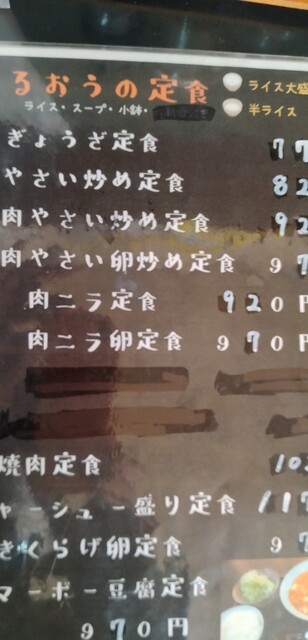 るおうの定食
ライス・スープ・小鉢・
ライス大盛
半ライス
ぎょうざ定食 77
やさい炒め定食 82
肉やさい炒め定食 92
肉やさい卵炒め定食 97
肉ニラ定食 920円
肉ニラ卵定食 970円
焼肉定食 10
ャーシュー盛り定食 11
きくらげ卵定食 97
マーボー豆腐定食
970円